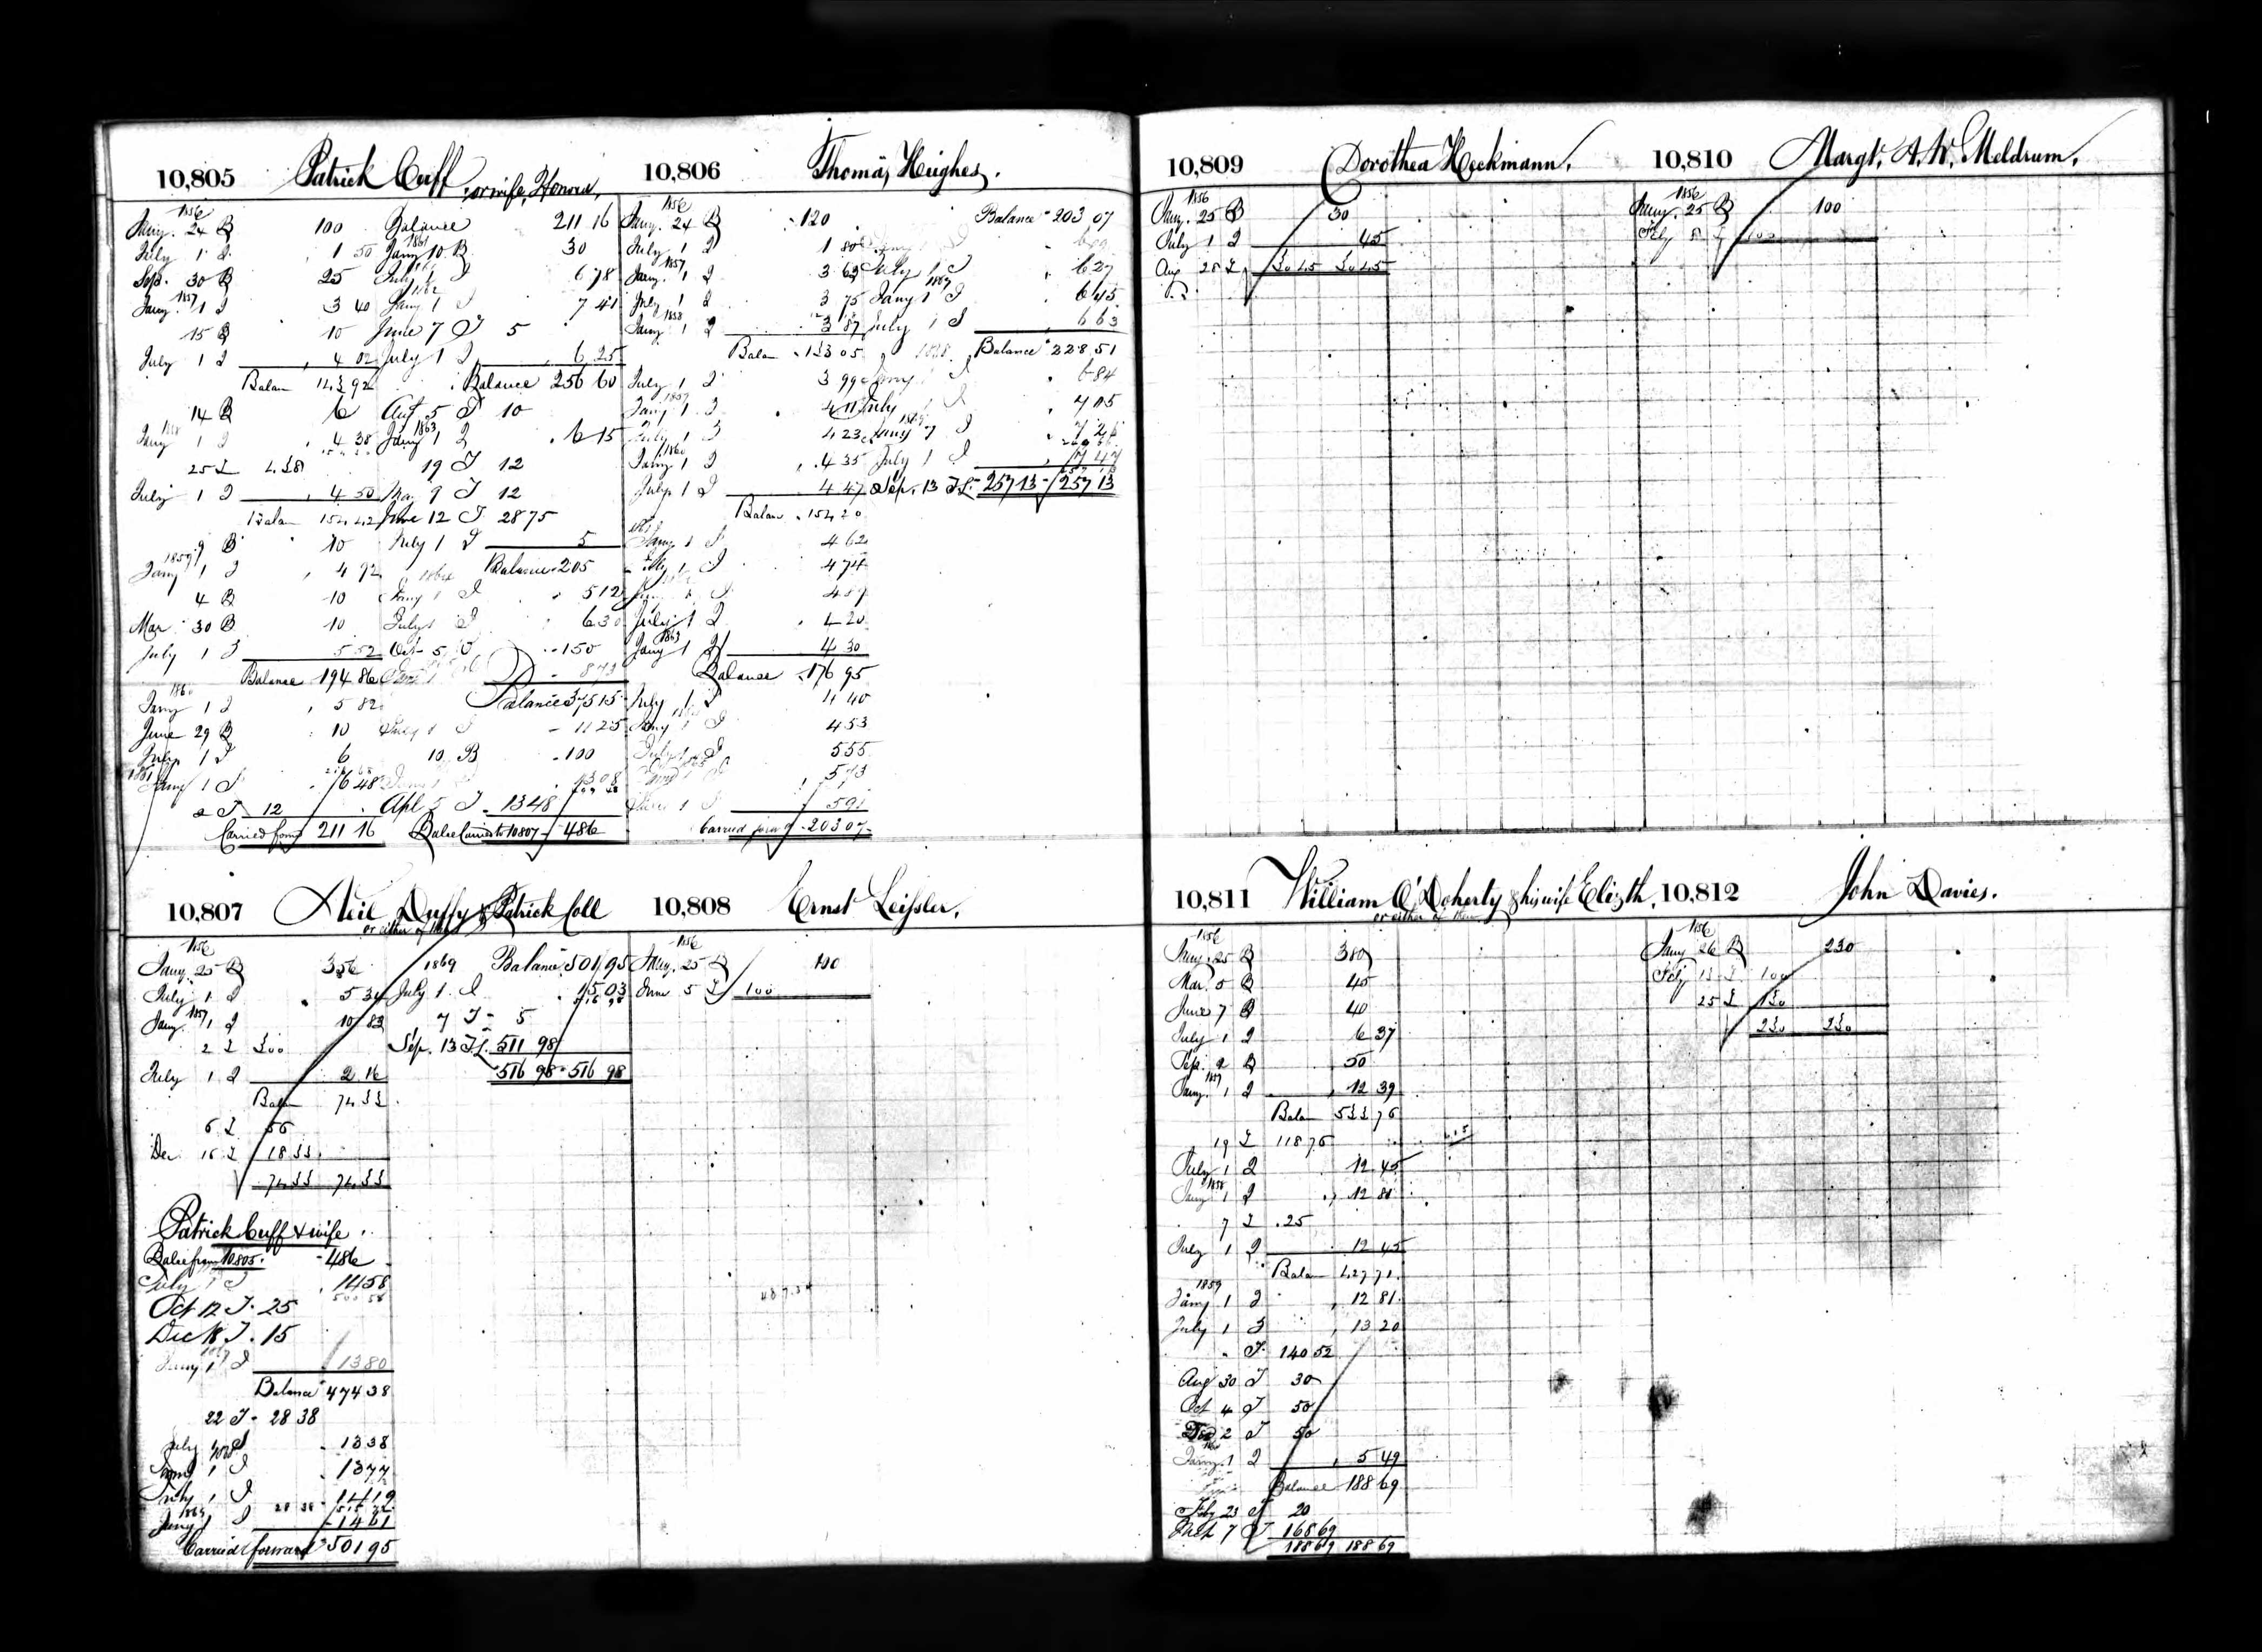 10,805 Patrick Cuff or wife, Honora,
1856
Jany. 24 B 100
July 1 I 1 50
Sep. 30 B 25
1857
Jany. 1 I 3 40
15 B 10
July 1 I 4 02
Balan 143 92
14 B 6
Jany 1 I 4 38
25 L
July 1 I 4 50
Balan 154 42
9 B 10
1859
Jany 1 I 4 92
4 B 10
Mar 30 B 10
July 1 I 5 52
Balance 194 86
1860
Jany 1 I 5 82
June 29 B 10
July 1 I 6
1861
Jany 1 I 6 48
2 T 12
Carried forwd 211 16
Balance 211 16
1861
Jany 10 B 30
July 1 I 6 78
1862
Jany 1 I 7 41
June 7 T 5
July 1 I 6 25
Balance 256 60
Aug 5 T 10
1863
Jany 1 I 6 15
19 T 12
May 9 T 12
June 12 T 28 75
July 1 I 5
Balance 205
1864
Jany 1 I 5 12
July 1 I 6 30
Oct 5 150
8 73
Balance 375 15
July 1 I 11 25
10 B 100
Apl 5 T 13 48
Balce Carried to 10807 486
10,806 Thomas Hughes.
1856
Jany. 24 B 120
July 1 I 1 80
1857
Jany. 1 I 3 63
July 1 I 3 75
1858
Jany. 1 I 3 87
Balan 133 05
July 1 I 3 99
1859
Jany 1 I 4 11
July 1 I 4 23
1860
Jany 1 I 4 35
July 1 I 4 47
Balan 154 20
Jany 1 I 4 62
July 1 I 4 74
July 1 I 4 20
1863
Jany 1 I 4 30
Balance 176 95
July 1 I 4 40
Jany 1 I 4 53
July 1 I 5 55
5 73
5 91
Carried forwd 203 07
Balance 203 07
July 1 I 6 27
1867
Jany 1 I 6 45
July 1 I 6 63
Balance 228 51
Jany 1 I 6 84
July 1 I 7 05
Jany 1 I 7 26
July 1 I 7 47
Sep. 13 T.L. 257 13 257 13
10,807 Neil Duffy & Patrick Coll
or either of them
1856
Jany. 25 B 356
July 1 I 5 34
1857
Jany. 1 I 10 83
2 L 300
July 1 I 2 16
Balan 74 33
6 L 56
Dec 15 L 18 33
74 33 74 33
Patrick Cuff & wife
Balce from 10805. 486
July 1 I 14 58
500 58
Oct 12 T. 25
Dec 18 T. 15
Jany 1 I 13 80
Balance 474 38
22 T. 28 38
July 1 I 13 38
Jany 1 I 13 77
July 1 I 14 19
Jany 1 I 14 61
Carried forward 501 95
1869 Balance 501 95
July 1. I 15 03
516 98
7 T 5
Sep. 13 T.L. 511 98
516 98 516 98
10,808 Ernst Leissler.
1856
Jany. 25 B 100
June 5 L 100
10,809 Dorothea Heckmann.
1856
Jany. 25 B 30
July 1 I 45
Aug 28 L 30 45 30 45
10,810 Margt. A. W. Meldrum.
1856
Jany. 25 B 100
Feby 8 L 100
10,811 William O'Doherty & his wife Elizth.
or either of them
1856
Jany. 25 B 380
Mar. 5 B 45
June 7 B 40
July 1 I 6 37
Sep. 2 B 50
1857
Jany. 1 I 12 39
Balan 533 76
19 L 118 76
July 1 I 12 45
1858
Jany 1 I 12 81
7 L 25
July 1 I 12 45
Balan 427 71
1859
Jany 1 I 12 81
July 1 I 13 20
T 140 52
Aug 30 T 30
Oct 4 T 50
Dec 2 T 50
Jany. 1 I 5 49
Balance 188 69
Feby 23 T 20
Mch 7 T 168 69
188 69 188 69
10,812 John Davies.
1856
Jany 26 B 230
Feby 13 L 100
25 L 130
230 230